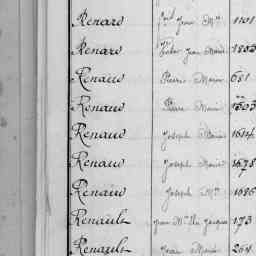 Renard Jean M. 1101
Renard Jean Marie 1803
Renaud Pierre Marie 681
Renaud Pierre Marie 1503
Renaud Joseph Marie 1614
Renaud Joseph Marie 1678
Renaud Joseph M. 1686
Renault Jean M. Jacques 173
Renault Jean Marie 264